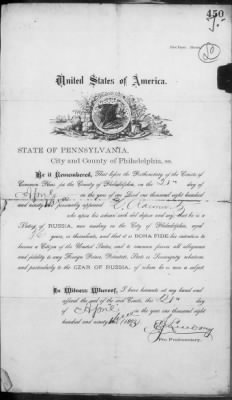 450
United States of America.
STATE OF PENNSYLVANIA,
City and County of Philadelphia, ss.
Be it Remembered, That before the Prothonotary of the Courts of
Common Pleas for the County of Philadelphia, on the day
of April in the year of our Lord one thousand eight hundred
and ninety personally appeared
who upon his solemn oath did depose and say that he is a
Native of RUSSIA, now residing in the City of Philadelphia, aged
years, or thereabouts, and that it is BONA FIDE his intention to
become a Citizen of the United States, and to renounce forever all allegiance
and fidelity to any Foreign Prince, Potentate, State or Sovereignty whatever,
and particularly to the CZAR OF RUSSIA, of whom he is now a subject
In Witness Whereof, I have hereunto set my hand and
affixed the seal of the said Courts, this day
of April in the year one thousand eight
hundred and ninety
Pro Prothonotary.